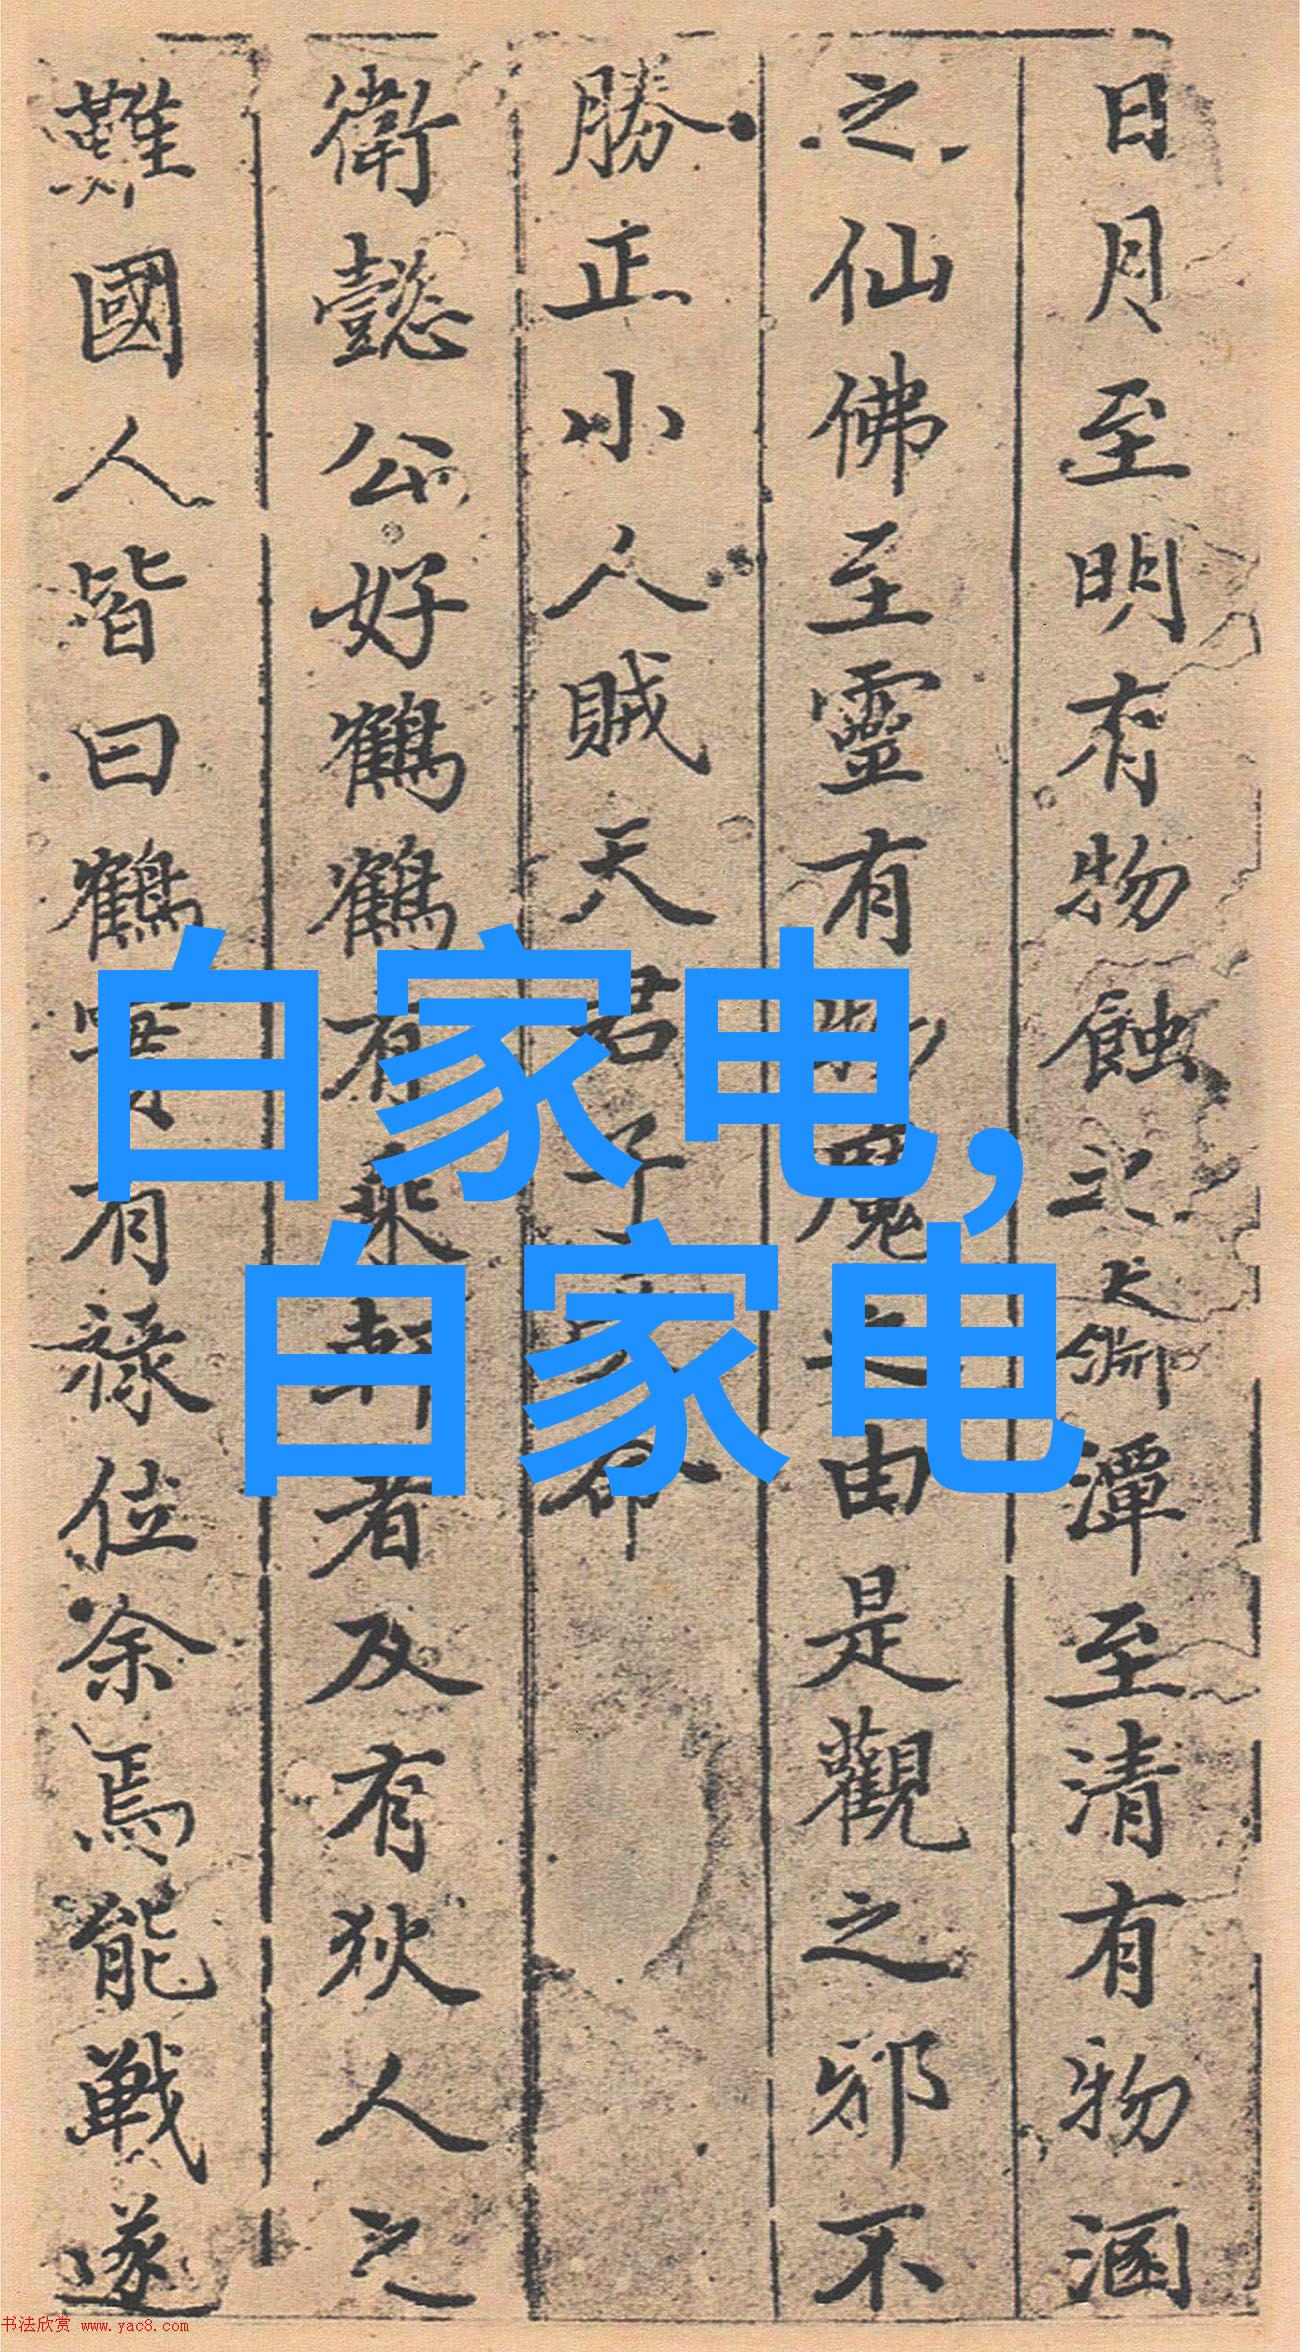 日月至明有物蝕之大淵潭至清有物涵
之仙佛至靈有物魔之由是觀之邪不
勝正小人賊天君子命
衛懿公好鶴鶴有乘軒者及有狄人之
難國人皆曰鶴有祿位余焉能戰遂
自家电,
自家电
书法欣赏 www.yac8.com